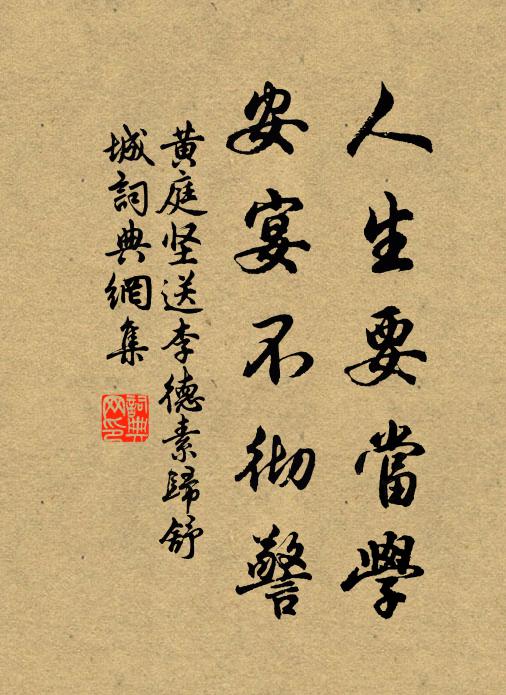 人生要當學
安宴不彻警
黃庭坚送李德素歸舒
城詞典網集
詞典
网印